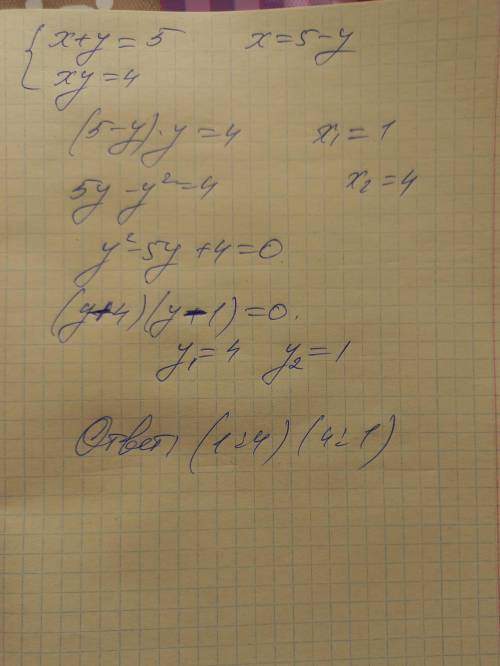 { x+y=5 x=5-y
xy=4
(5-y)·y=4 x₁=1
5y-y²=4 x₂=4
y²-5y+4=0
(y-4)(y-1)=0.
y₁=4 y₂=1
Ответ, (1;4) (4;1)